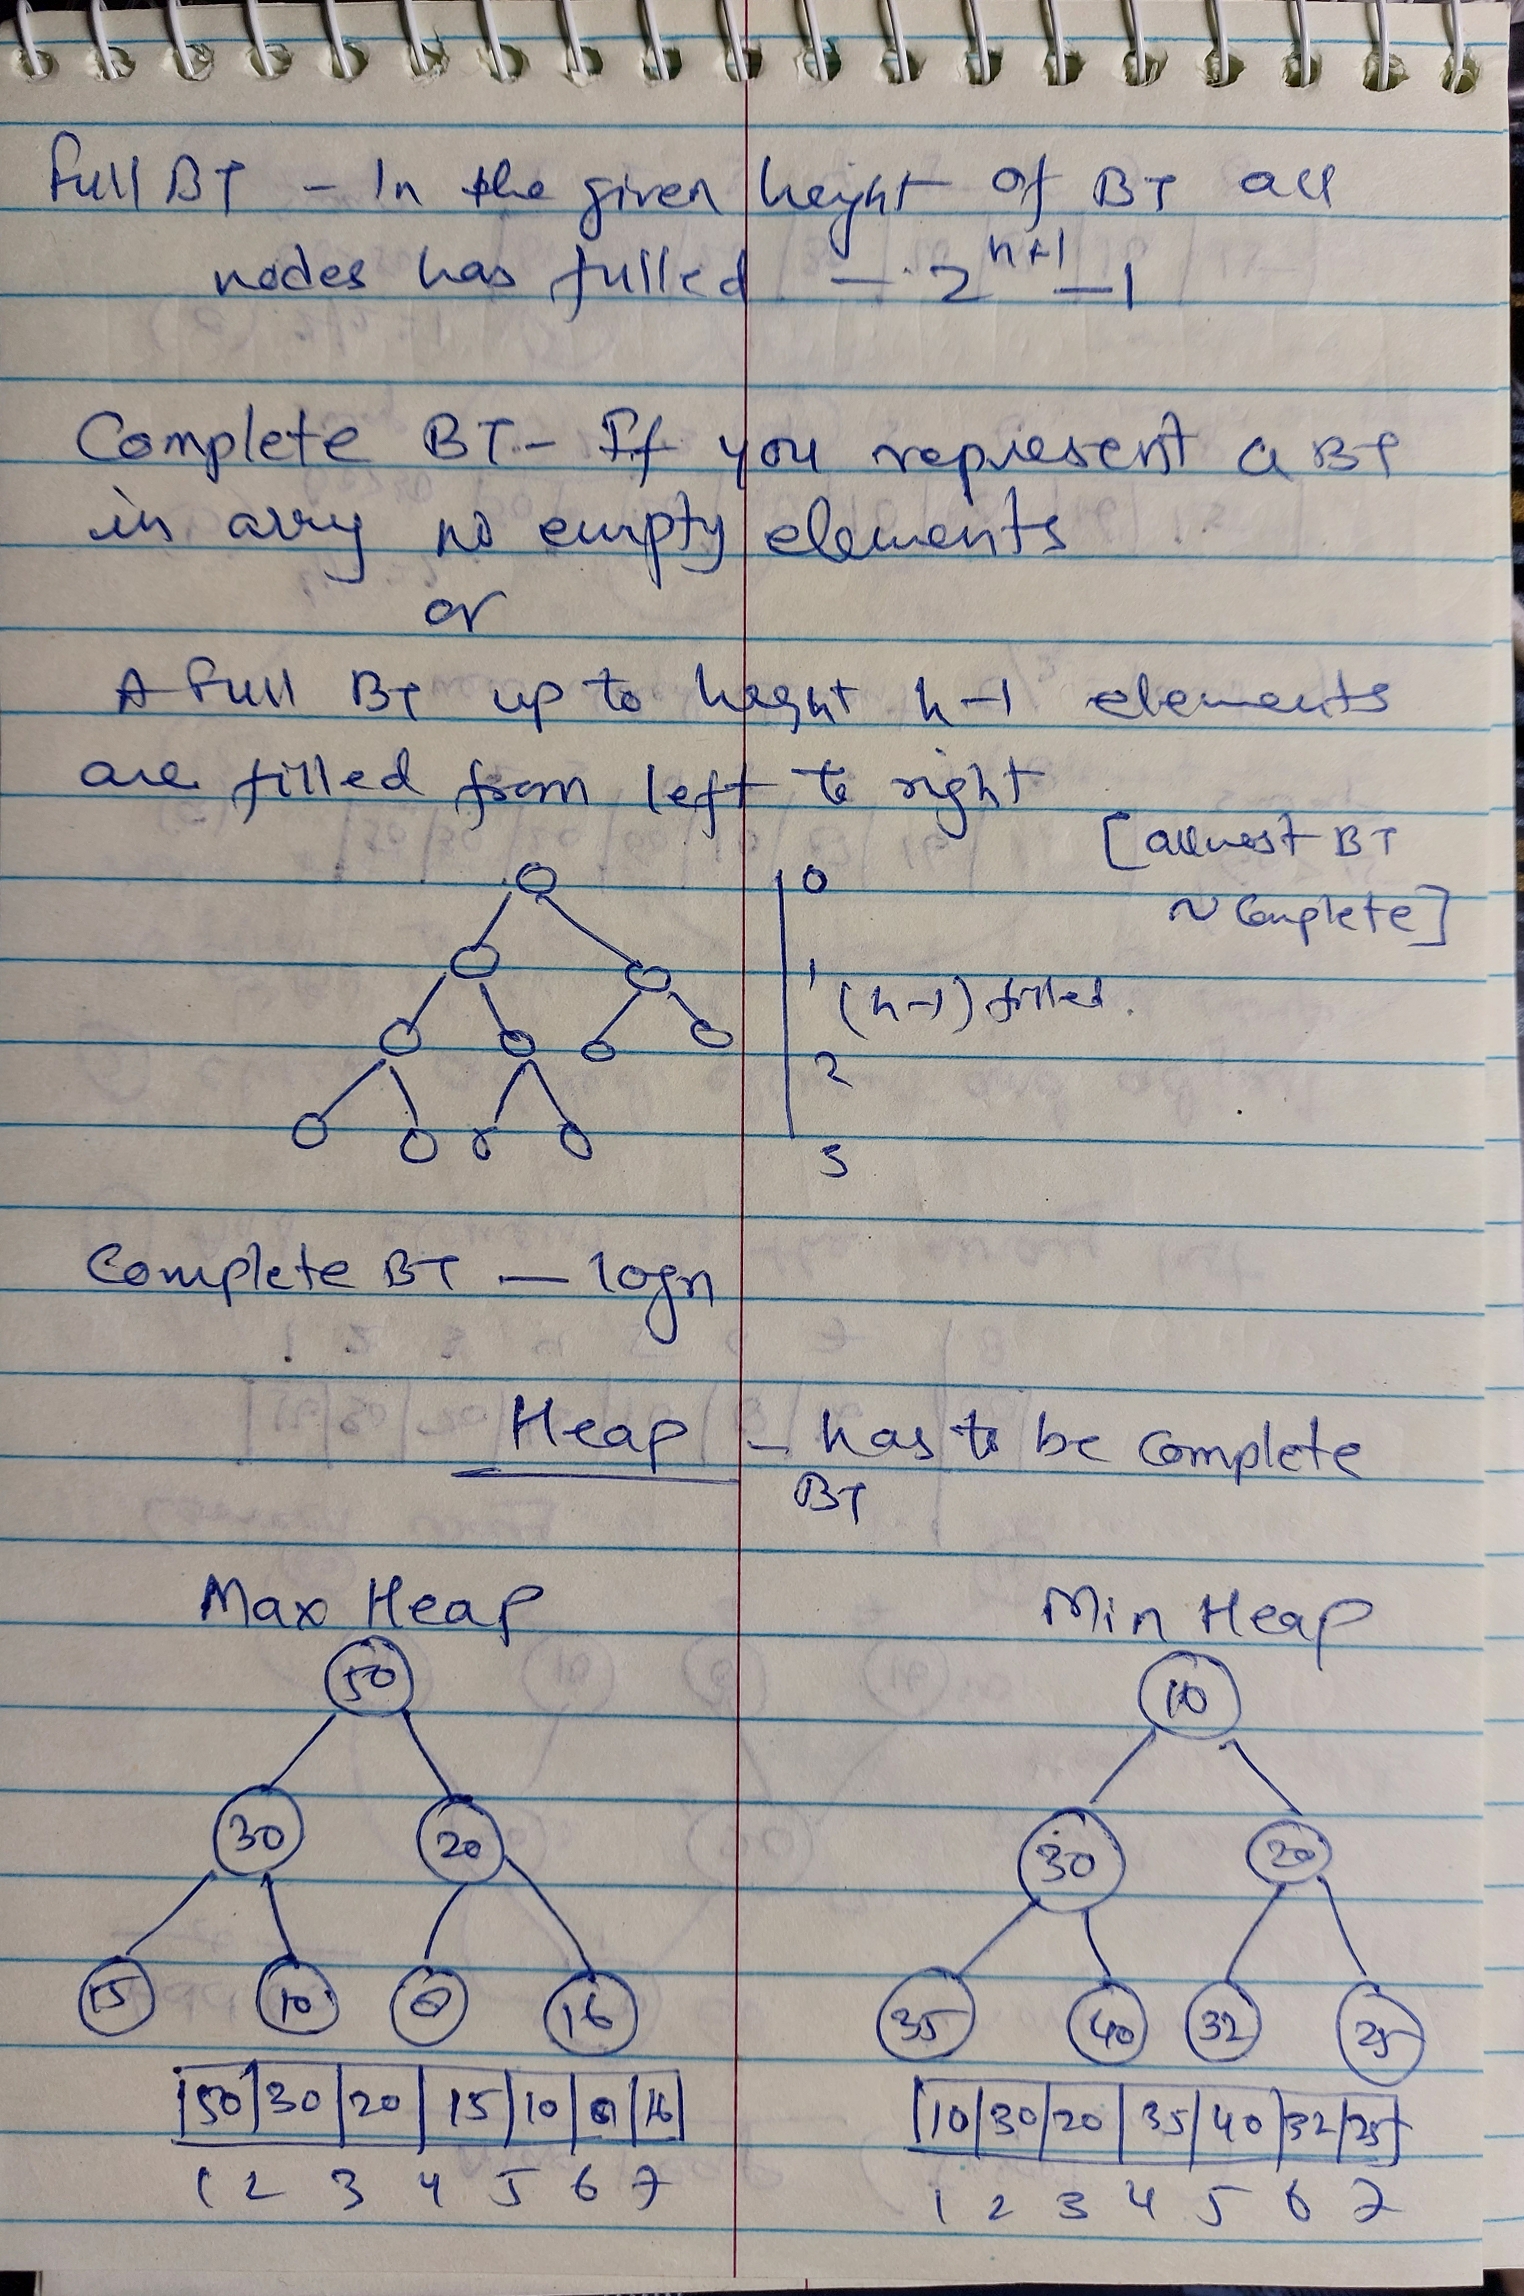 Full BT - In the given height of BT all
nodes has fulled - 2^h+1 - 1
Complete BT - If you represent a BT
in arry no empty elements
or
A full BT up to height h-1 elements
are filled from left to right
[allmost BT
~ Complete]
0
1
(h-1) filled.
2
3
Complete BT - logn
Heap - has to be complete
BT
Max Heap
50
30 20
15 10 16
50 30 20 15 10 16
1 2 3 4 5 6 7
Min Heap
10
30 20
35 40 32 25
10 30 20 35 40 32 25
1 2 3 4 5 6 7